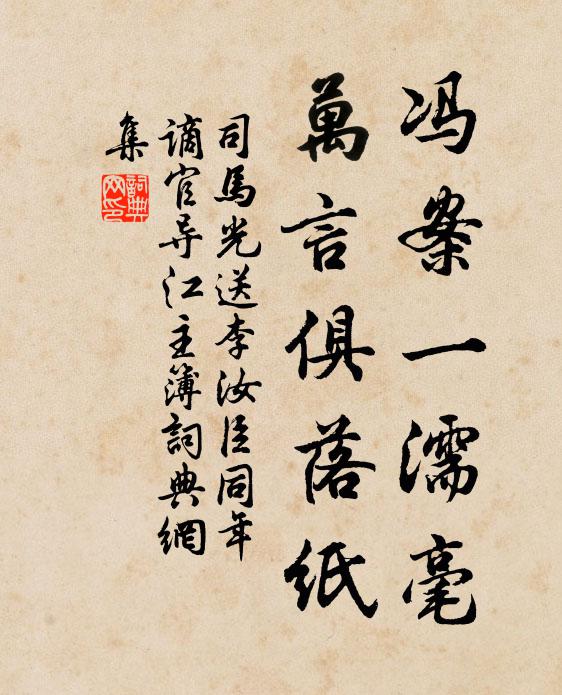 冯案一濡毫
萬言俱落紙
司馬光送李汝臣同年
謫官导江主簿詞典網
集
詞典网印